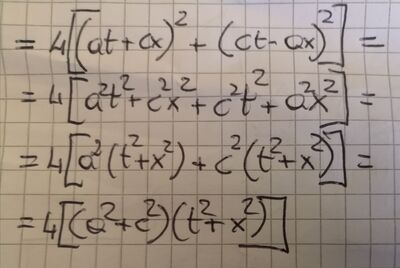 = 4[(at+cx)² + (ct-ax)²] =
= 4[a²t²+c²x²+c²t²+a²x²] =
= 4[a²(t²+x²)+c²(t²+x²)] =
= 4[(a²+c²)(t²+x²)]